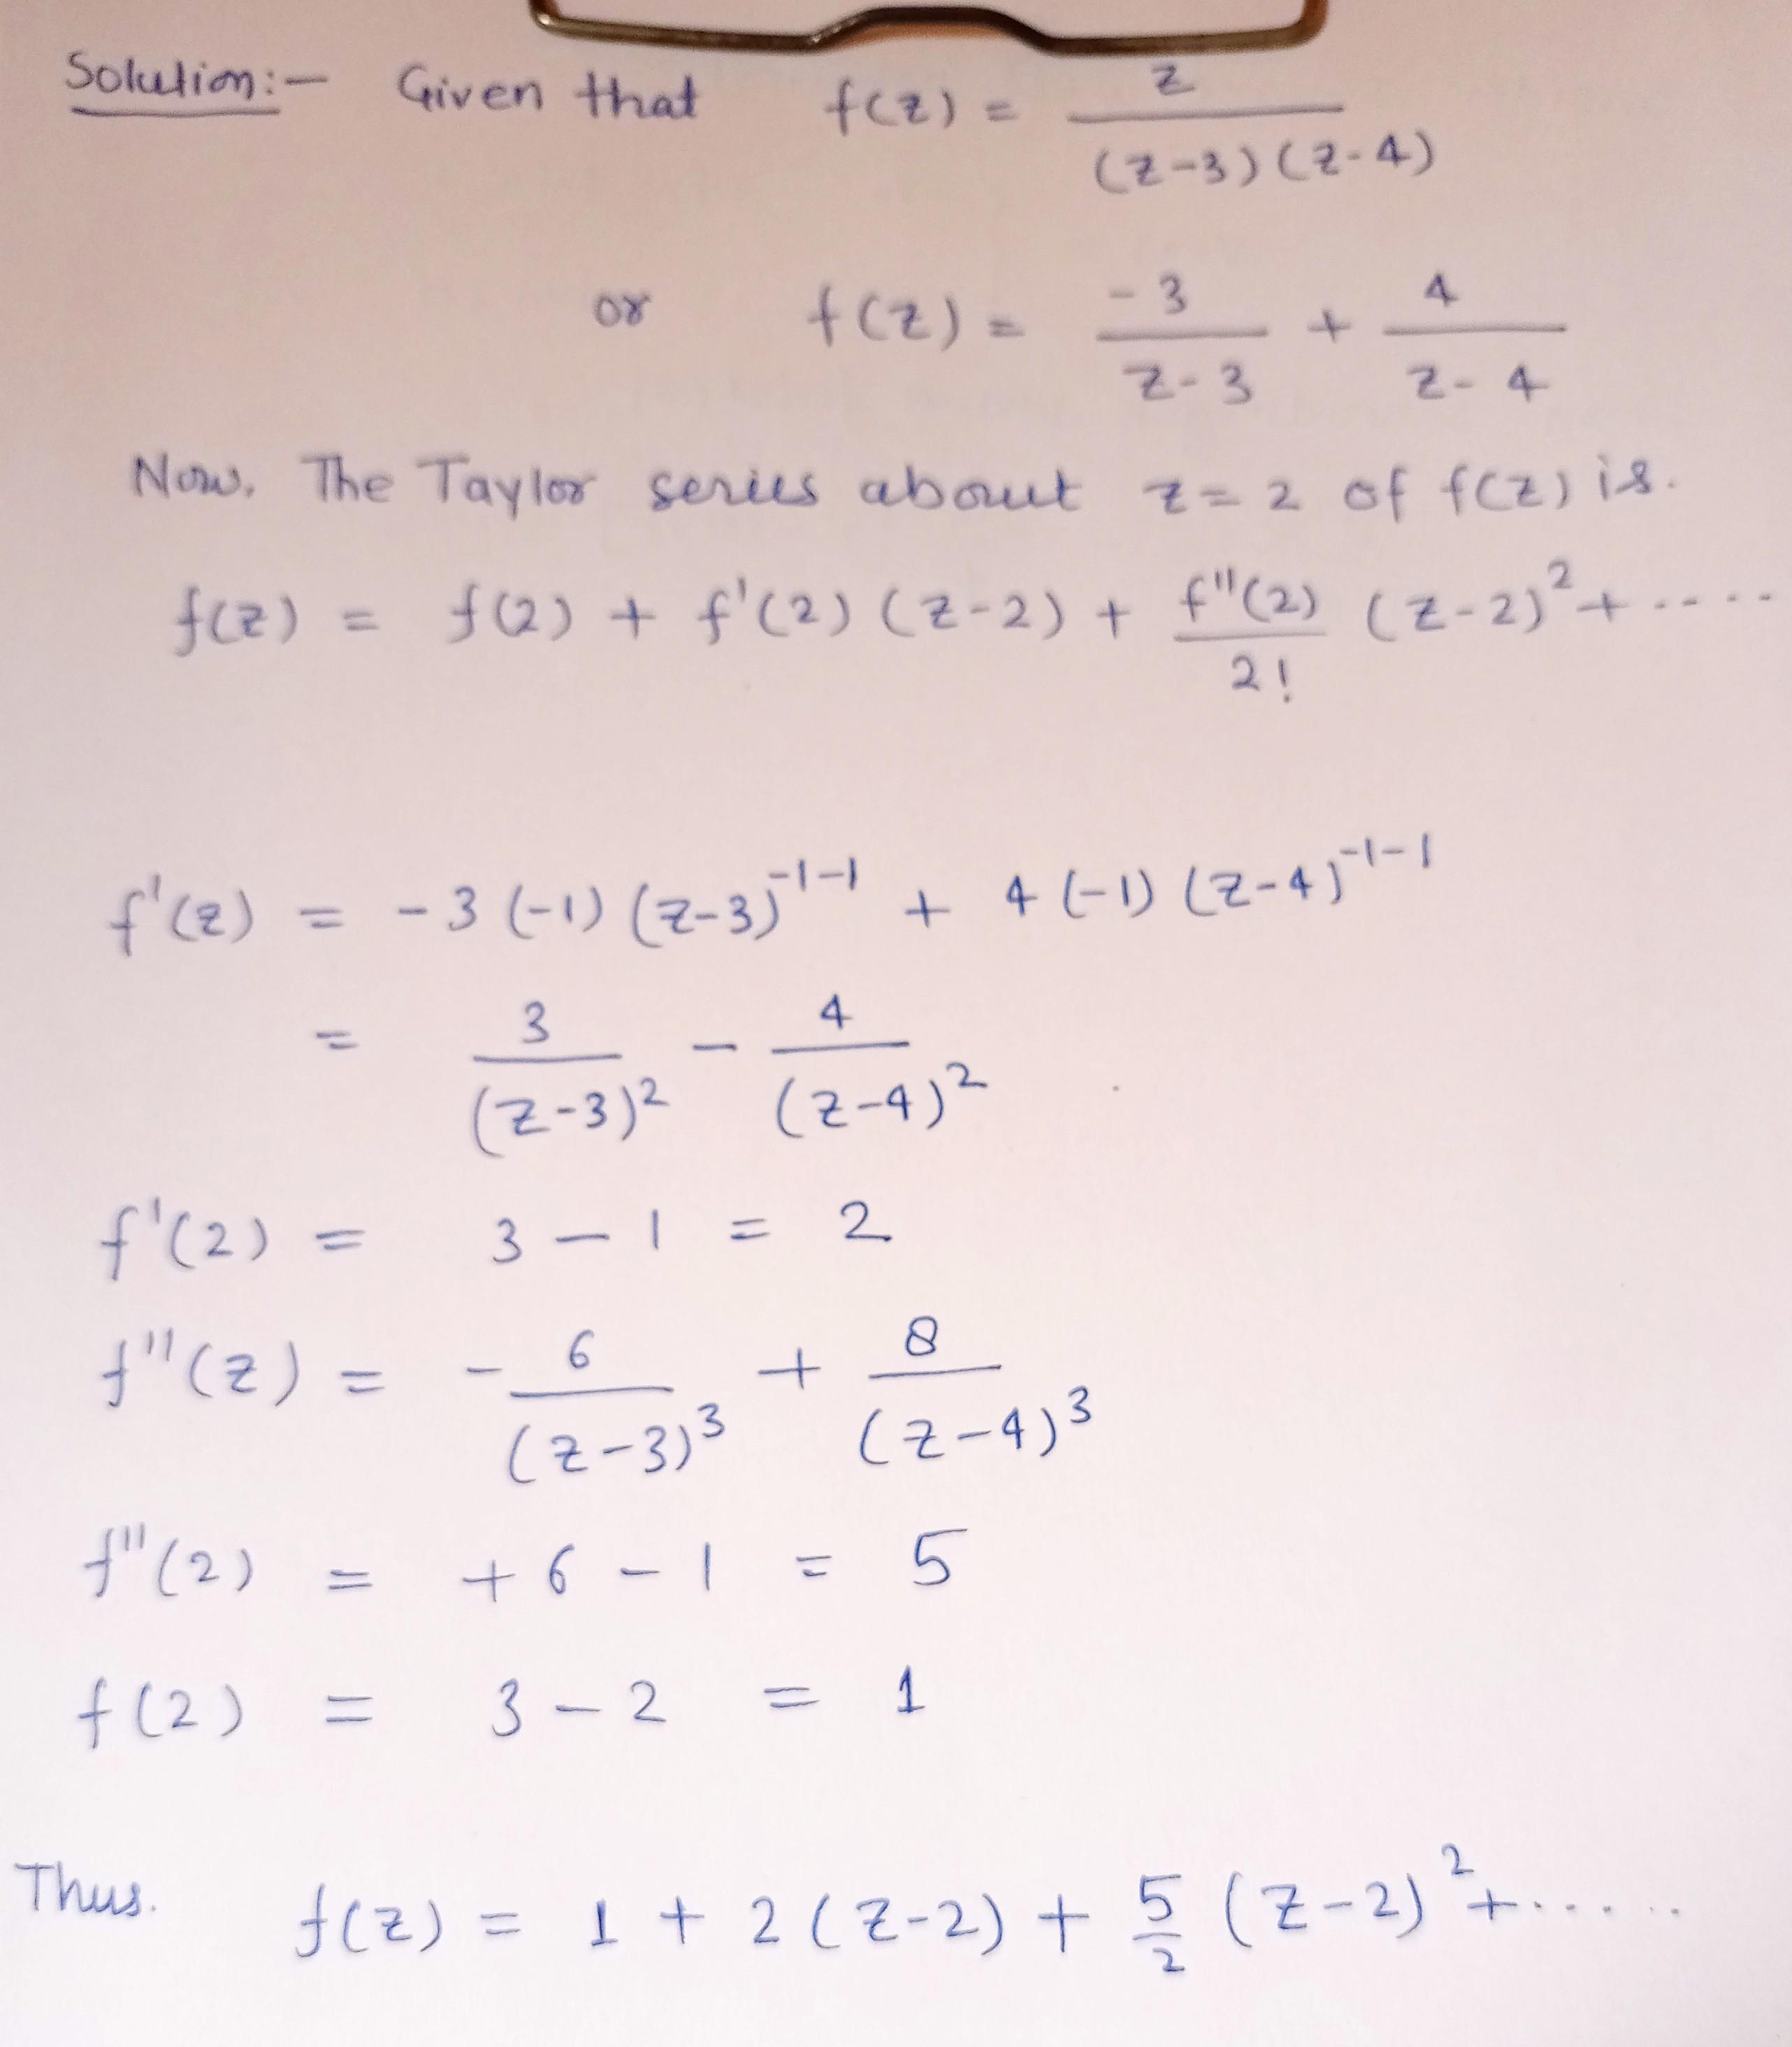 Solution:- Given that f(z) = z / (z-3)(z-4)
or f(z) = -3/(z-3) + 4/(z-4)
Now, The Taylor series about z=2 of f(z) is.
f(z) = f(2) + f'(2) (z-2) + f''(2)/2! (z-2)² + ....
f'(z) = -3 (-1) (z-3)⁻¹⁻¹ + 4 (-1) (z-4)⁻¹⁻¹
= 3/(z-3)² - 4/(z-4)²
f'(2) = 3 - 1 = 2
f''(z) = - 6/(z-3)³ + 8/(z-4)³
f''(2) = +6 - 1 = 5
f(2) = 3 - 2 = 1
Thus. f(z) = 1 + 2 (z-2) + 5/2 (z-2)² + ......